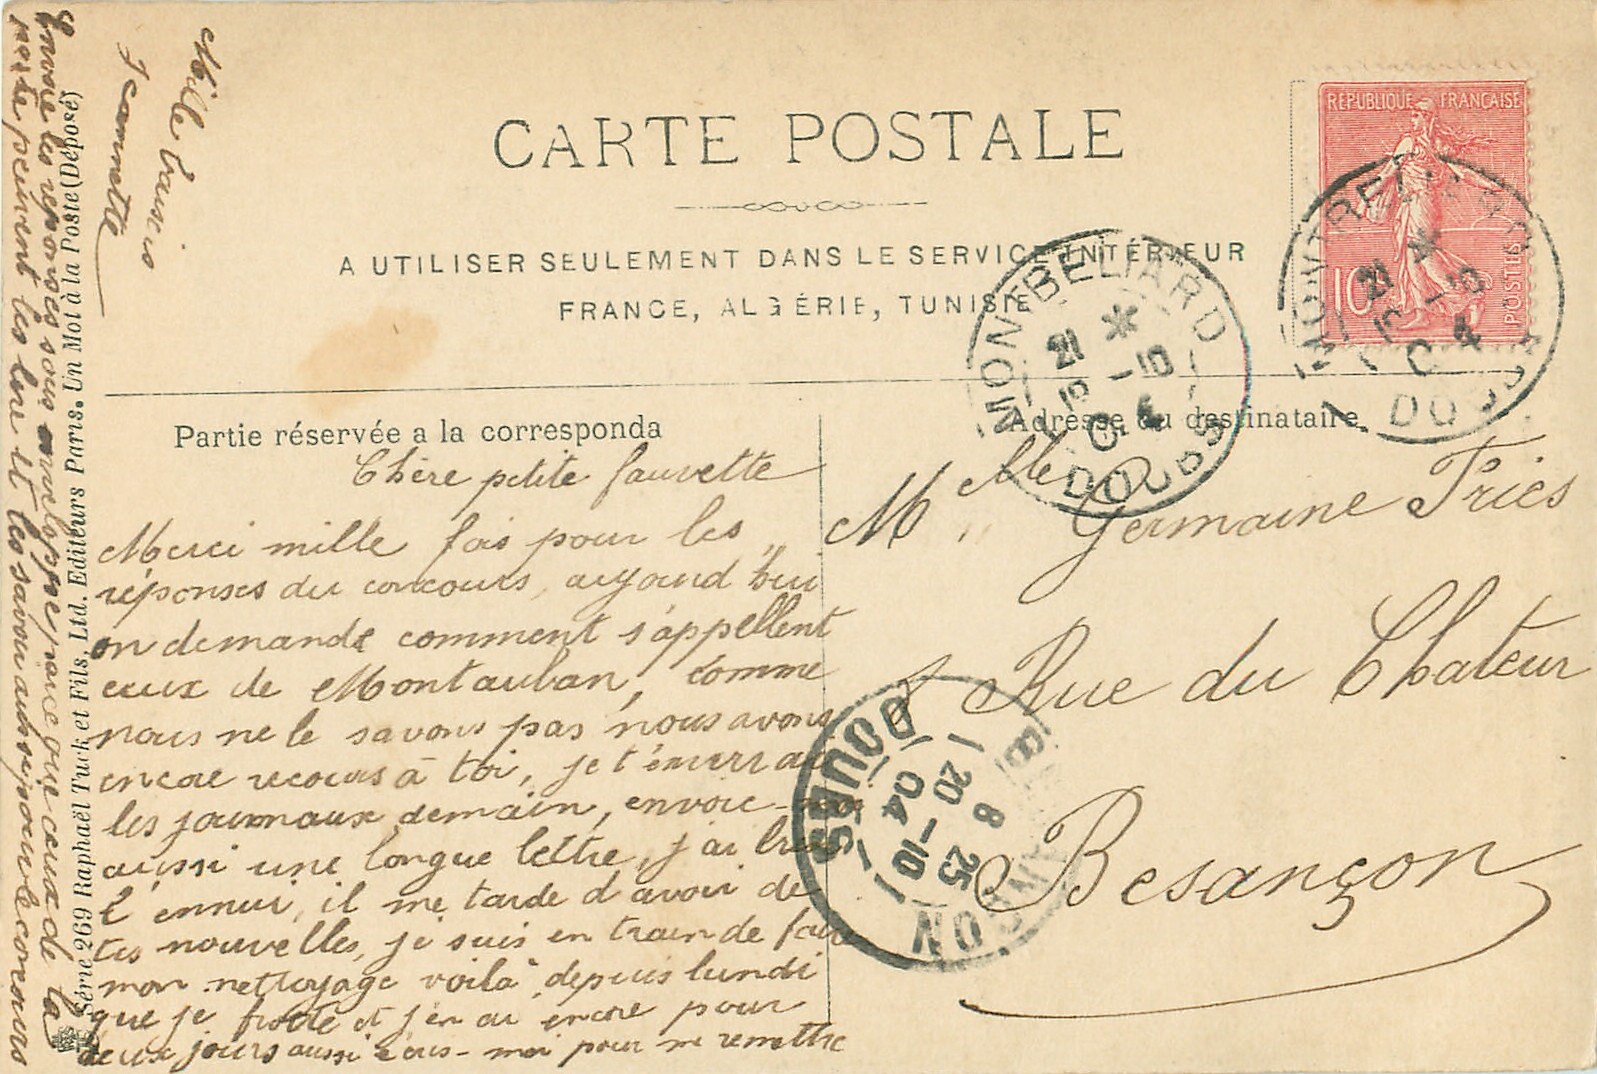 CARTE POSTALE
A UTILISER SEULEMENT DANS LE SERVICE INTÉRIEUR
FRANCE, ALGÉRIE, TUNISIE
RÉPUBLIQUE FRANÇAISE
10
POSTES
MONTBELIARD
21 - 10
04
DOUBS
MONTBELIARD
21 - 10
4
DOUBS
Partie réservée a la corresponda
Chère petite fauvette
Merci mille fois pour les
réponses du concours, aujourd'hui
on demande comment s'appellent
ceux de Montauban, comme
nous ne le savons pas nous avons
encore recours à toi, je t'enverrai
les journaux demain, envoie-moi
aussi une longue lettre, j'ai
l'ennui, il me tarde d'avoir de
tes nouvelles, je suis en train de faire
mon nettoyage voilà depuis lundi
que je frotte et j'en ai encore pour
deux jours aussi écris-moi pour me remettre
Envoie les réponses sous enveloppe parce que ceux de la
poste peuvent les lire et les savoir aussi pour le concours
Mille baisers
Jeannette
Adresse du destinataire
Mlle Germaine Tries
Rue du Chateur
Besançon
BESANCON
8 25
20 - 10
04
DOUBS
Série 269 Raphaël Tuck et Fils, Ltd. Editeurs Paris. Un Mot à la Poste (Déposé)